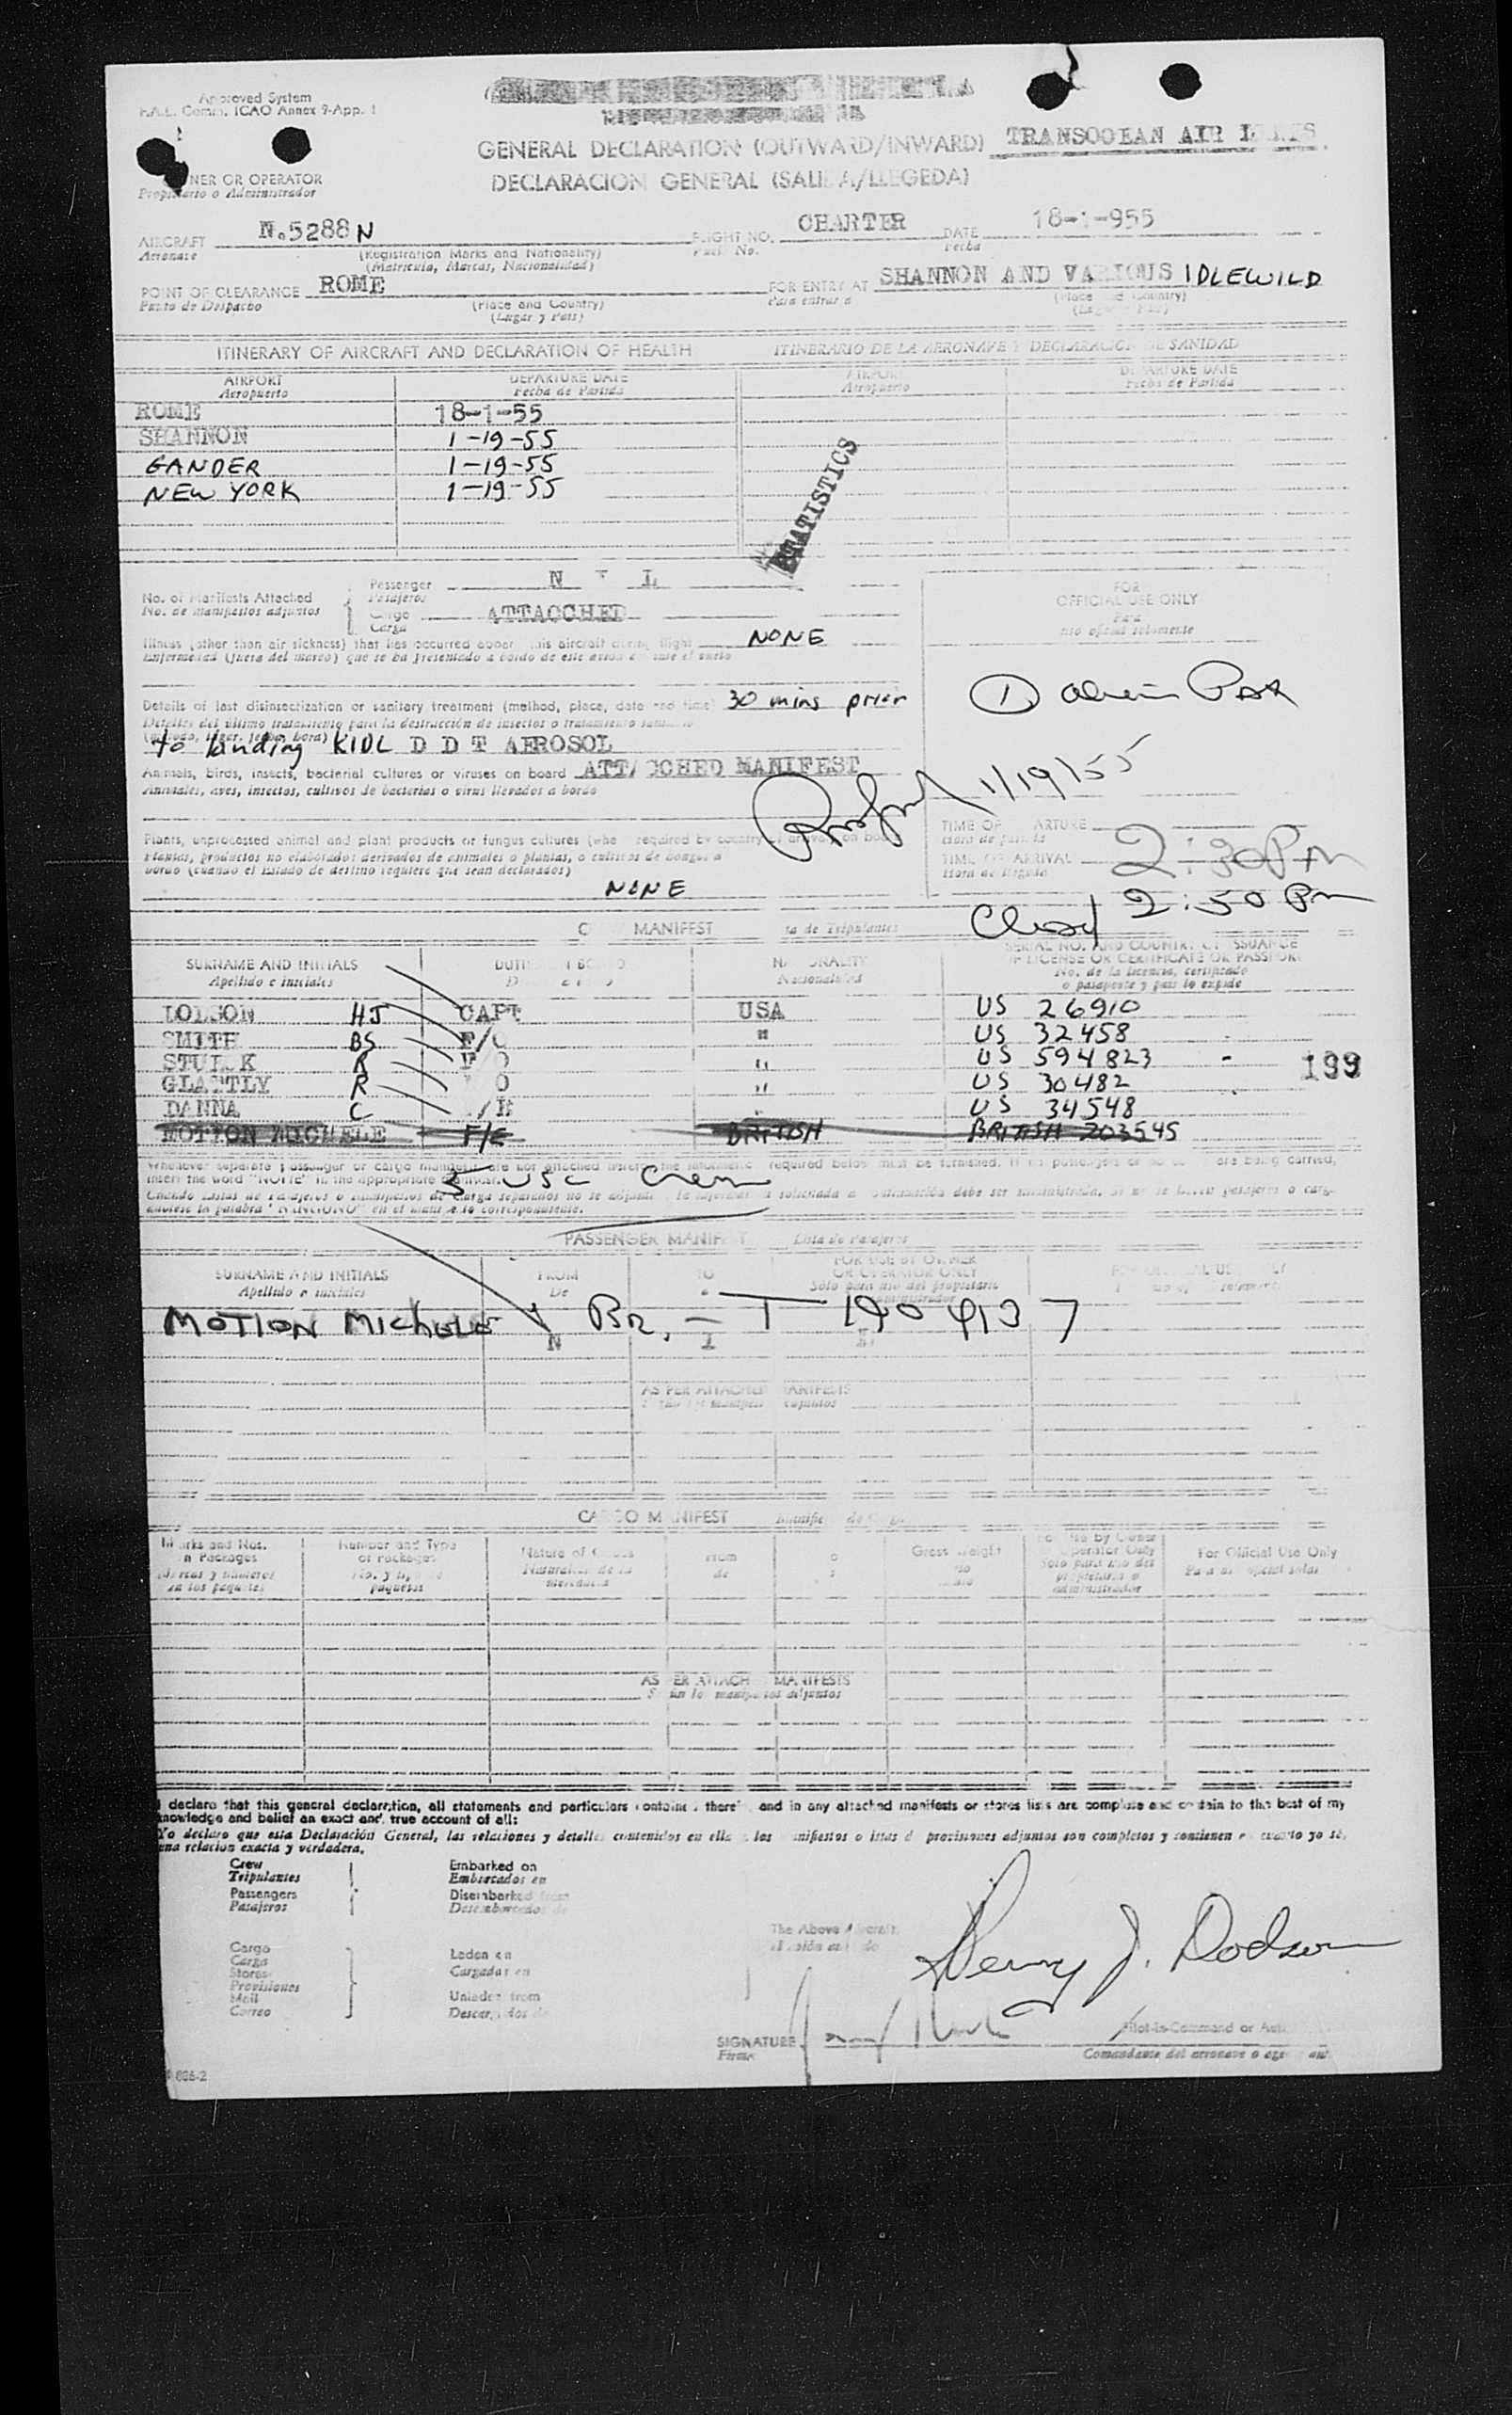 Approved System
F.A.L. Comm. ICAO Annex 9-App. 1
GENERAL DECLARATION (OUTWARD/INWARD) TRANSOCEAN AIR
OWNER OR OPERATOR
Propietario o Administrador
DECLARACION GENERAL (SALIDA/LLEGEDA)
AIRCRAFT N.5288N FLIGHT NO. CHARTER DATE 18-1-955
Aeronave (Registration Marks and Nationality) Fecha
(Matricula, Marcas, Nacionalidad)
POINT OF CLEARANCE ROME FOR ENTRY AT SHANNON AND VARIOUS IDLEWILD
Punto de Despacho (Place and Country) Para entrar a (Place and Country)
(Lugar y Pais)
ITINERARY OF AIRCRAFT AND DECLARATION OF HEALTH ITINERARIO DE LA AERONAVE Y DECLARACION DE SANIDAD
AIRPORT DEPARTURE DATE AIRPORT DEPARTURE DATE
Aeropuerto Fecha de Partida Aeropuerto Fecha de Partida
ROME 18-1-55
SHANNON 1-19-55
GANDER 1-19-55
NEW YORK 1-19-55
STATISTICS
No. of Manifests Attached Passenger N I L
No. de manifiestos adjuntos Pasajeros
Cargo ATTACCHED
Carga
FOR
OFFICIAL USE ONLY
Para
uso oficial solamente
Illness (other than air sickness) that has occurred aboard this aircraft during flight NONE
Enfermedad (fuera del mareo) que se ha presentado a bordo de este avion durante el vuelo
Details of last disinsectization or sanitary treatment (method, place, date and time) 30 mins prior
Detalles del último tratamiento para la destrucción de insectos o tratamiento
to landing KIDL D D T AEROSOL
① alien Pax
Animals, birds, insects, bacterial cultures or viruses on board ATTACCHED MANIFEST
Animales, aves, insectos, cultivos de bacterias o virus llevados a bordo
1/19/55
Plants, unprocessed animal and plant products or fungus cultures (when required by country of arrival) on board
Plantas, productos no elaborados derivados de animales o plantas, o cultivos de hongos a
bordo (cuando el Estado de destino requiere que sean declarados)
NONE
TIME OF DEPARTURE
TIME OF ARRIVAL 2:30 PM
Hora de llegada
2:50 Pm
CREW MANIFEST Lista de Tripulantes
SURNAME AND INITIALS DUTIES ON BOARD NATIONALITY SERIAL NO. AND COUNTRY OF ISSUANCE
OF LICENSE OR CERTIFICATE OR PASSPORT
Apellido e iniciales Nacionalidad No. de la licencia, certificado
o pasaporte y pais lo expide
HJ CAPT USA US 26910
SMITH BS F/O " US 32458
R " US 594823 - 199
GLATTLY R " US 30482
DANNA C US 34548
MOTION MICHELE F/E BRITISH BRITISH 203545
Whenever separate passenger or cargo manifests are not attached hereto the information required below must be furnished. If no passengers or are being carried,
insert the word "NONE" in the appropriate
5 USC Crew
PASSENGER MANIFEST Lista de Pasajeros
SURNAME AND INITIALS FROM TO FOR USE BY OWNER
OR OPERATOR ONLY
Apellido e iniciales De a Sólo para uso del propietario
MOTION MICHELE Br. - I 1904137
N I
AS PER ATTACHED MANIFESTS
CARGO MANIFEST
Marks and Nos. Number and Type Nature of Goods From Gross Weight For Use by Owner For Official Use Only
on Packages of Packages de Operator Only
AS PER ATTACHED MANIFESTS
Según los manifiestos adjuntos
I declare that this general declaration, all statements and particulars contained therein, and in any attached manifests or stores lists are complete and certain to the best of my
knowledge and belief an exact and true account of all:
Yo declaro que esta Declaración General, las relaciones y detalles contenidos en ella y los manifiestos o listas de provisiones adjuntos son completos y contienen en cuanto yo sé,
una relación exacta y verdadera.
Crew Embarked on
Tripulantes Embarcados en
Passengers Disembarked from
Pasajeros
Cargo Laden on
Carga Cargadas en
Stores
Provisiones
Mail Unladen from
Correo
The Above Aircraft
Henry J. Dodson
SIGNATURE Pilot-in-Command or
Firma Comandante del aeronave o